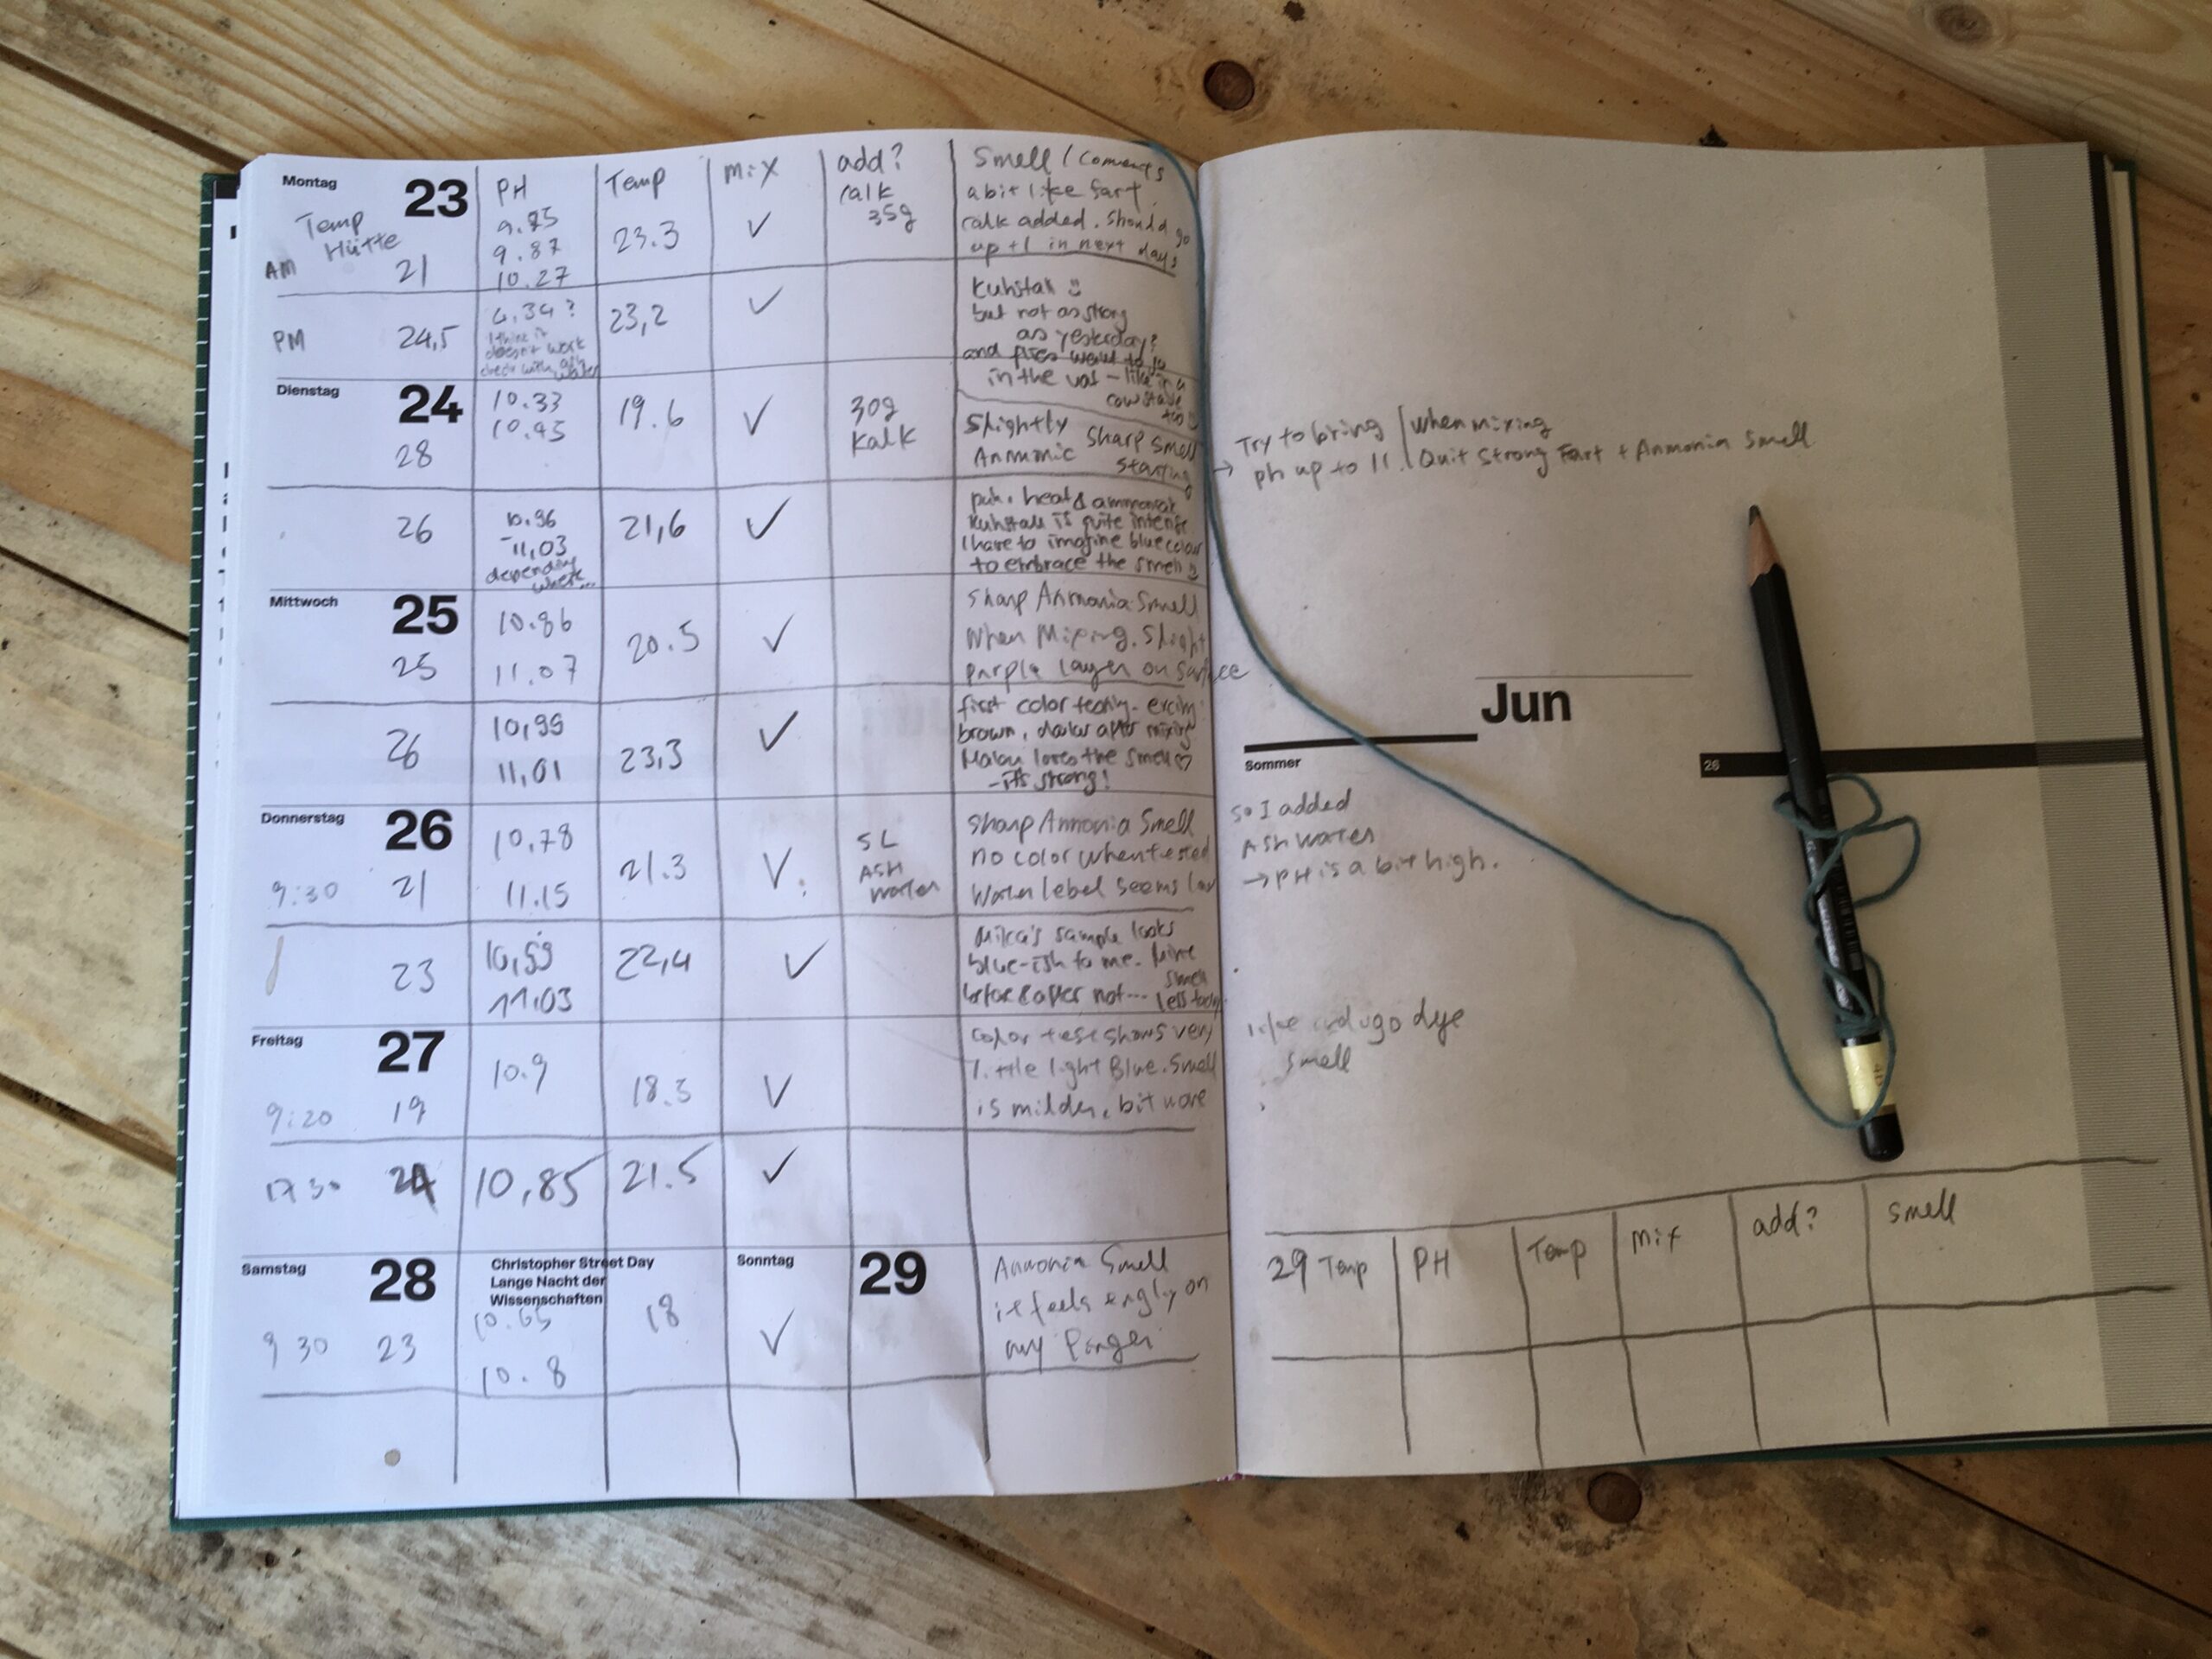 Montag 23 PH Temp mix add? Smell / Coments
Temp Hütte
AM 21
9.87
10.27
23.3 ✓
35g
a bit like fart.
added. Should go
up +1 in next days
PM 24,5
?
I think it
doesn't work
check with ash
water
23,2 ✓
Kuhstall
but not as strong
as yesterday?
and flies want to
in the vat – like in a
cow stable
too
Dienstag 24
28
10.33
10.45
19.6 ✓
30g
Kalk
Slightly
Anmonic Sharp Smell
starting
→ Try to bring
ph up to 11.
When mixing
Quit Strong Fart + Anmonia Smell
26
10.96
-11,03
depending
where...
21,6 ✓
puh. heat &
Kuhstall is quite intense
I have to imagine blue colour
to embrace the smell
Mittwoch 25
25
10.86
11.07
20.5 ✓
Sharp Anmonia Smell
When Mixing. Slight
purple layer on surface
26
10,99
11,01
23,3 ✓
first color
brown, darker after mixing
loves the smell ♡
- it's strong!
Jun
Sommer
26
Donnerstag 26
9:30 21
10.78
11.15
21.3 ✓
5 L
ASH
water
Sharp Anmonia Smell
no color when tested
Water lebel seems low
so I added
ASH water
→ PH is a bit high.
23
10,99
11.03
22,4 ✓
sample looks
blue-ish to me. Mine
before & after not... smell
less today
Freitag 27
9:20 19
10.9
18.3 ✓
color test shows very
little light Blue. Smell
is milder, bit more
like indugo dye
smell
17 30 24
10,85 21.5 ✓
Samstag 28
Christopher Street Day
Lange Nacht der
Wissenschaften
Sonntag 29
9 30 23
10.65
10.8
18 ✓
Anmonia Smell
it feels on
my
29 Temp PH Temp Mix add? Smell